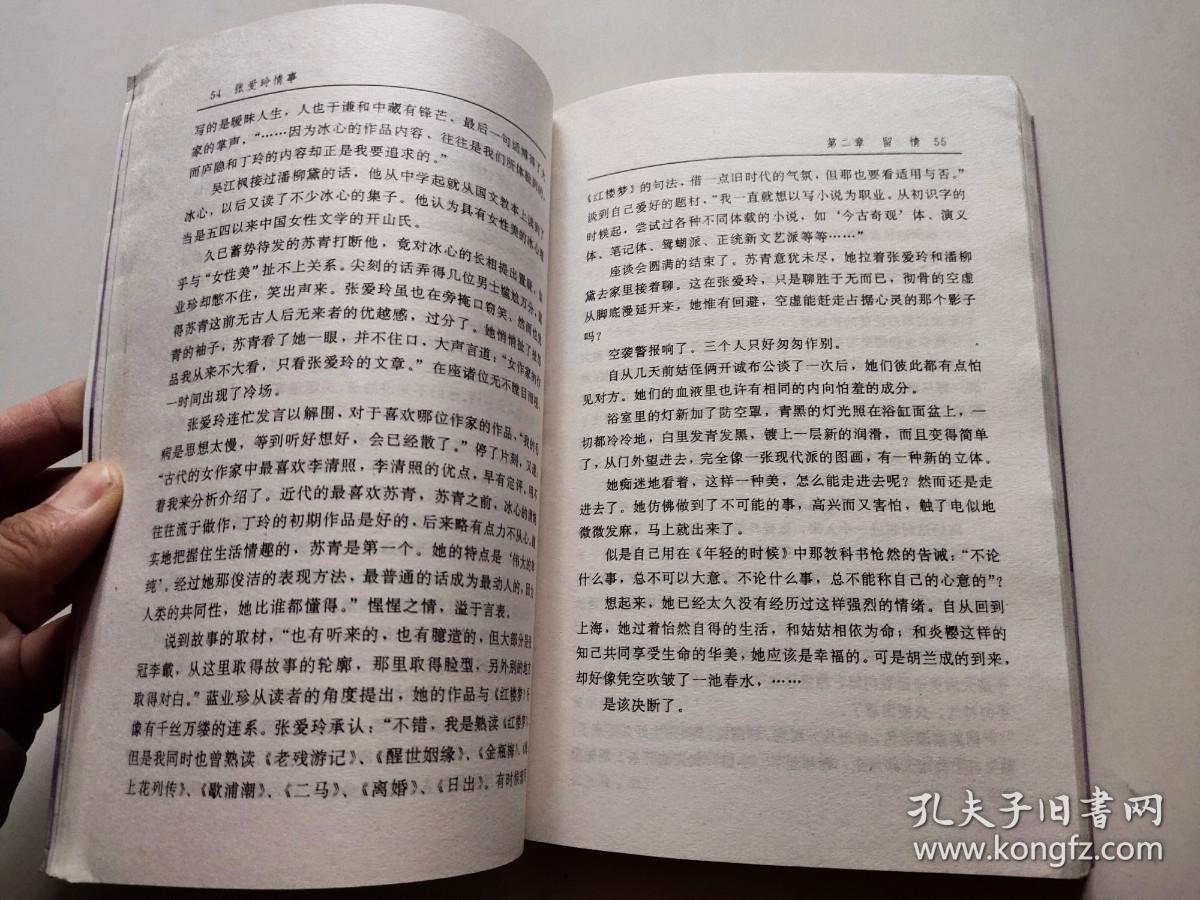 54 张爱玲情事
写的是暧昧人生，人也于谦和中藏有锋芒、最后一句话博得了大
家的掌声，“……因为冰心的作品内容、往往是我们所体验到的，
而庐隐和丁玲的内容却正是我要追求的。”
吴江枫接过潘柳黛的话，他从中学起就从国文教本上读到了
冰心，以后又读了不少冰心的集子。他认为具有女性美的冰心
当是五四以来中国女性文学的开山氏。
久已蓄势待发的苏青打断他，竟对冰心的长相提出置疑，
乎与“女性美”扯不上关系。尖刻的话弄得几位男士尴尬万分，
业珍却憋不住，笑出声来。张爱玲虽也在旁掩口窃笑、然而也
得苏青这前无古人后无来者的优越感，过分了。她悄悄扯了扯苏
青的袖子，苏青看了她一眼，并不住口、大声言道：“女作家的作
品我从来不大看，只看张爱玲的文章。”在座诸位无不瞠目
一时间出现了冷场。
张爱玲连忙发言以解围，对于喜欢哪位作家的作品，“我的毛
病是思想太慢，等到听好想好，会已经散了。”停了片刻，又说：
“古代的女作家中最喜欢李清照，李清照的优点，早有定评，用不
着我来分析介绍了。近代的最喜欢苏青，苏青之前，冰心的清婉
往往流于做作，丁玲的初期作品是好的，后来略有点力不从心。
实地把握住生活情趣的，苏青是第一个。她的特点是‘伟大的单
纯’。经过她那俊洁的表现方法，最普通的话成为最动人的，因为
人类的共同性，她比谁都懂得。”惺惺之情，溢于言表。
说到故事的取材，“也有听来的，也有臆造的，但大部分是张
冠李戴，从这里取得故事的轮廓，那里取得脸型，另外别的地方
取得对白。”蓝业珍从读者的角度提出，她的作品与《红楼梦》
像有千丝万缕的连系。张爱玲承认：“不错，我是熟读《红楼梦》，
但是我同时也曾熟读《老残游记》、《醒世姻缘》、《金瓶梅》、《海
上花列传》、《歇浦潮》、《二马》、《离婚》、《日出》。有时候套用
第二章 留 情 55
《红楼梦》的句法，借一点旧时代的气氛，但那也要看适用与否。”
谈到自己爱好的题材，“我一直就想以写小说为职业。从初识字的
时候起，尝试过各种不同体裁的小说，如‘今古奇观’体、演义
体、笔记体、鸳蝴派、正统新文艺派等等……”
座谈会圆满的结束了。苏青意犹未尽，她拉着张爱玲和潘柳
黛去家里接着聊。这在张爱玲，只是聊胜于无而已，彻骨的空虚
从脚底漫延开来，她惟有回避，空虚能赶走占据心灵的那个影子
吗？
空袭警报响了。三个人只好匆匆作别。
自从几天前姑侄俩开诚布公谈了一次后，她们彼此都有点怕
见对方。她们的血液里也许有相同的内向怕羞的成分。
浴室里的灯新加了防空罩，青黑的灯光照在浴缸面盆上，一
切都冷冷地，白里发青发黑，镀上一层新的润滑，而且变得简单
了，从门外望进去，完全像一张现代派的图画，有一种新的立体。
她痴迷地看着，这样一种美，怎么能走进去呢？然而还是走
进去了。她仿佛做到了不可能的事，高兴而又害怕，触了电似地
微微发麻，马上就出来了。
似是自己用在《年轻的时候》中那教科书怆然的告诫：“不论
什么事，总不可以大意。不论什么事，总不能称自己的心意的”？
想起来，她已经太久没有经历过这样强烈的情绪。自从回到
上海，她过着怡然自得的生活，和姑姑相依为命；和炎樱这样的
知己共同享受生命的华美，她应该是幸福的。可是胡兰成的到来，
却好像凭空吹皱了一池春水，……
是该决断了。
孔夫子旧书网
www.kongfz.com